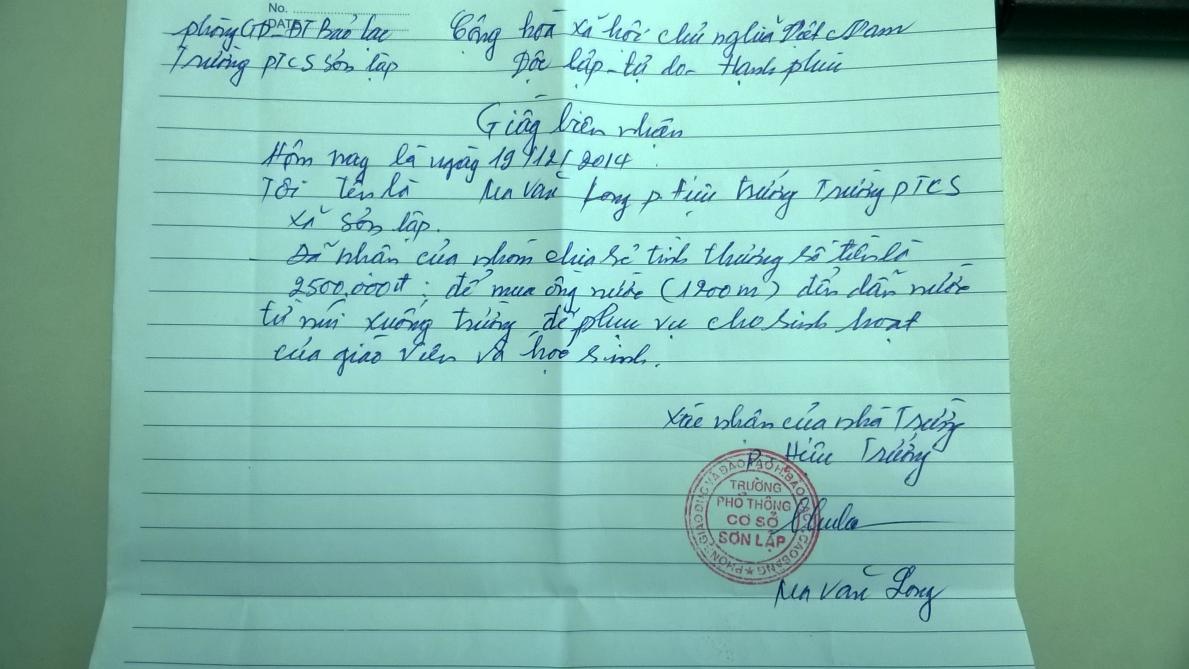 No.
DATE
phòng GD-ĐT Bảo Lạc Cộng hòa xã hội chủ nghĩa Việt Nam
Trường PTCS Sơn Lập Độc lập - tự do - Hạnh phúc
Giấy biên nhận
Hôm nay là ngày 19/12/2014
Tôi tên là Ma Văn Long p. Hiệu trưởng Trường PTCS
xã Sơn Lập.
Đã nhận của nhóm chia sẻ tình thương số tiền là
2500.000đ; để mua ống nước (1200m) dẫn nước
từ núi xuống trường để phục vụ cho sinh hoạt
của giáo viên và học sinh.
Xác nhận của nhà Trường
P. Hiệu Trưởng
PHÒNG GIÁO DỤC VÀ ĐÀO TẠO H. BẢO LẠC - CAO BẰNG
TRƯỜNG
PHỔ THÔNG
CƠ SỞ
SƠN LẬP
Ma Văn Long